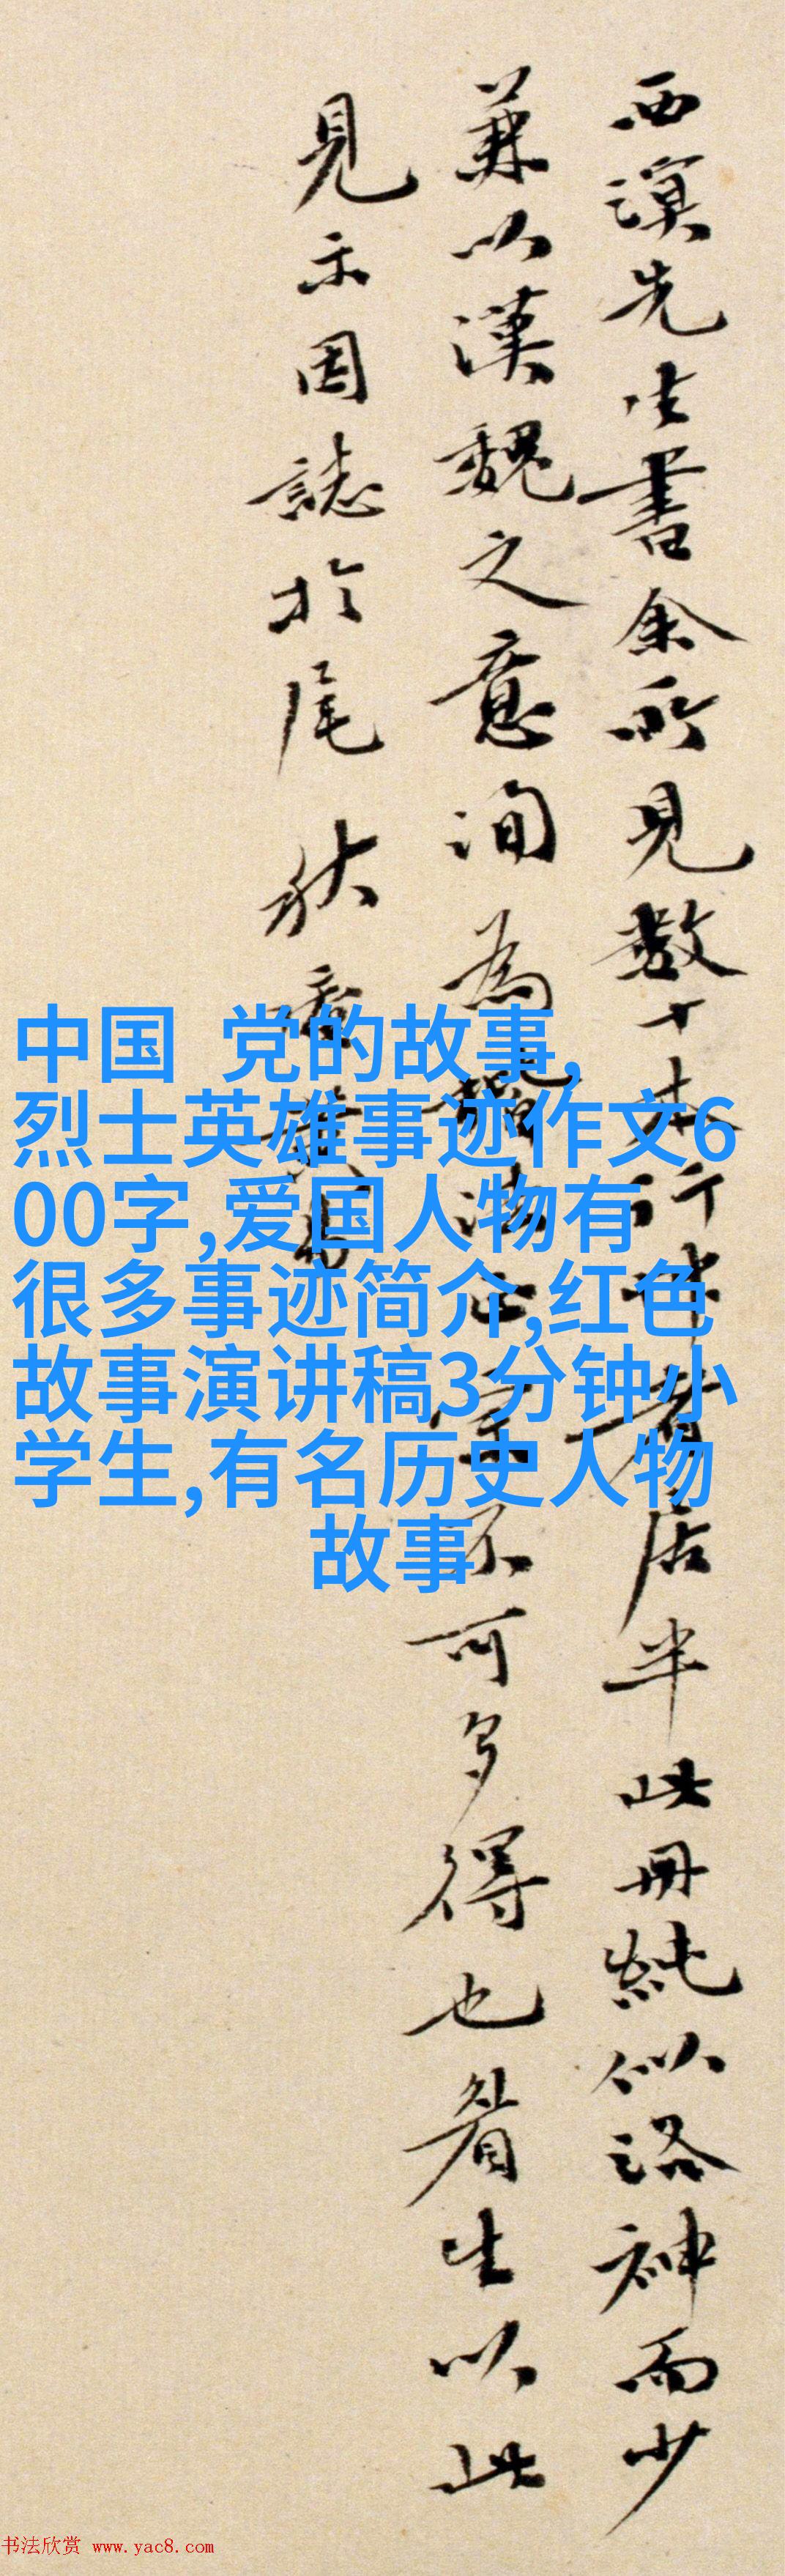 西溟先生書余所見數十本行
者居半此冊純似洛神而少
兼以漢魏之意洵為
不可多得也眉生以此
見示因誌於尾
中国 党的故事,
烈士英雄事迹作文6
00字,爱国人物有
很多事迹简介,红色
故事演讲稿3分钟小
学生,有名历史人物
故事
书法欣赏 www.yac8.com